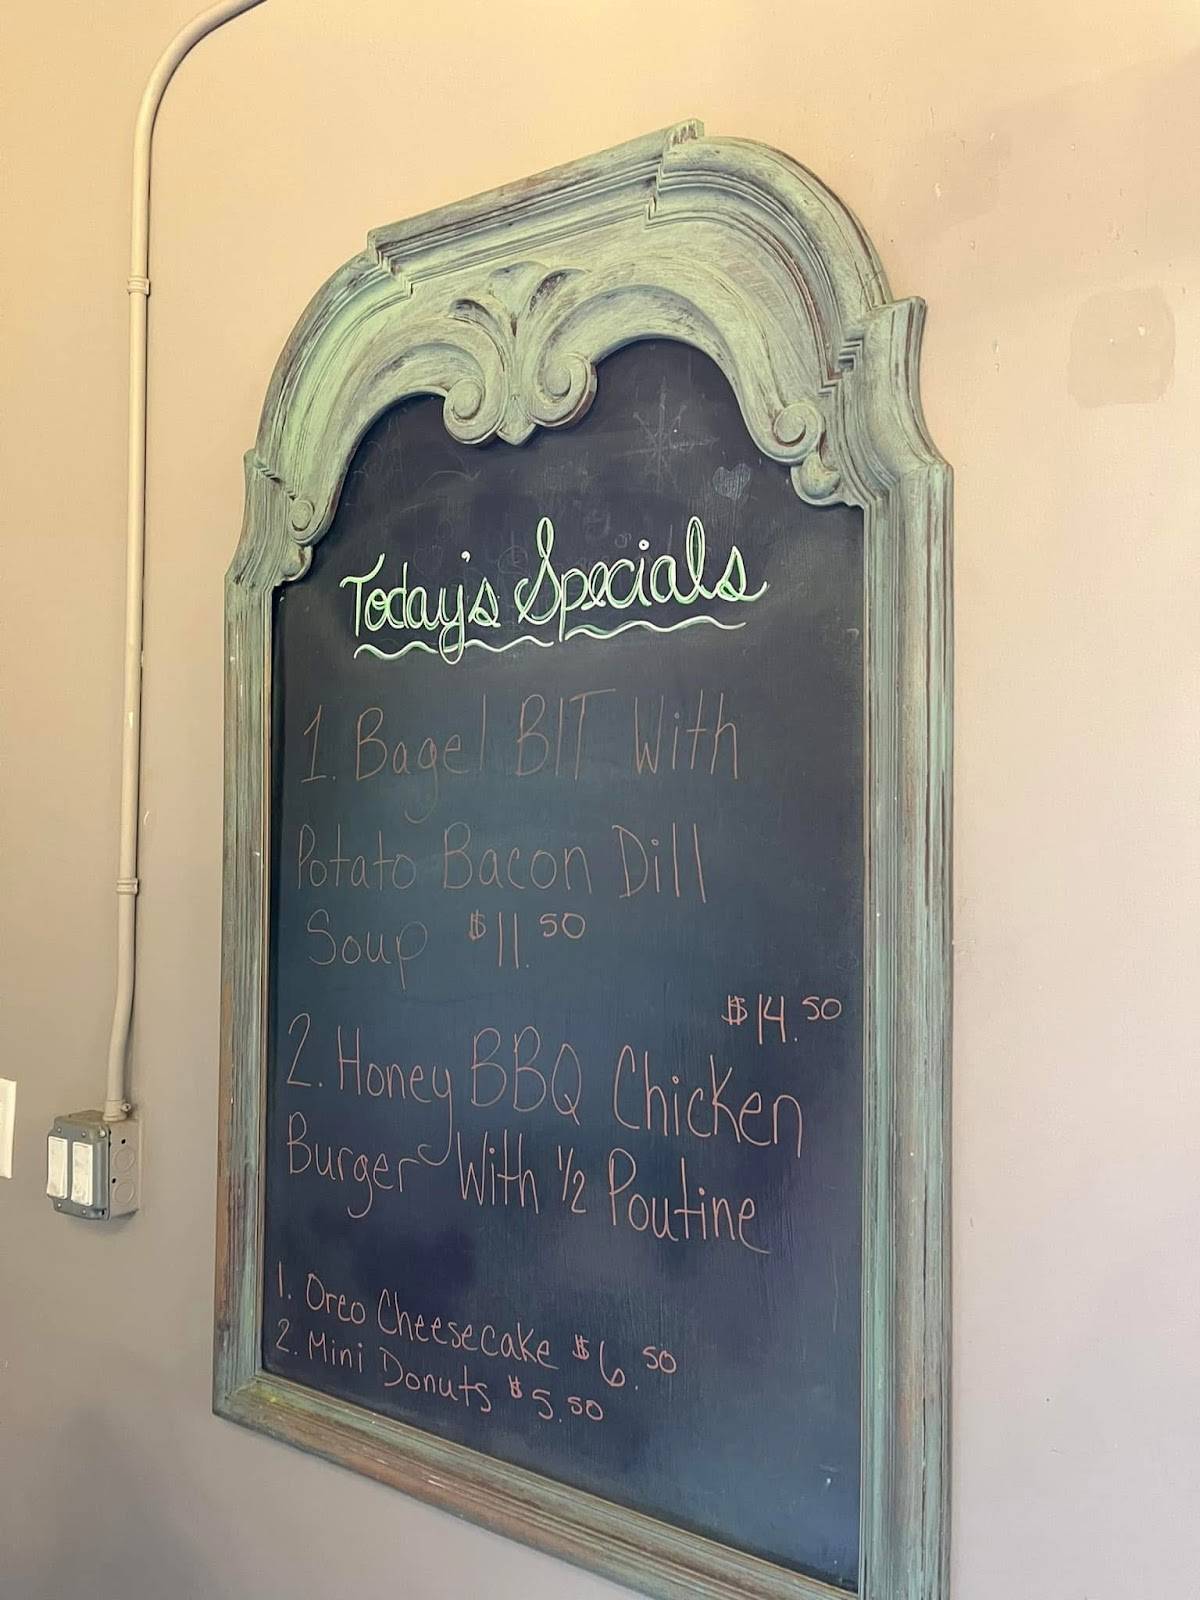 Today's Specials
1. Bagel BIT With
Potato Bacon Dill
Soup $11.50
$14.50
2. Honey BBQ Chicken
Burger With 1/2 Poutine
1. Oreo Cheesecake $6.50
2. Mini Donuts $5.50